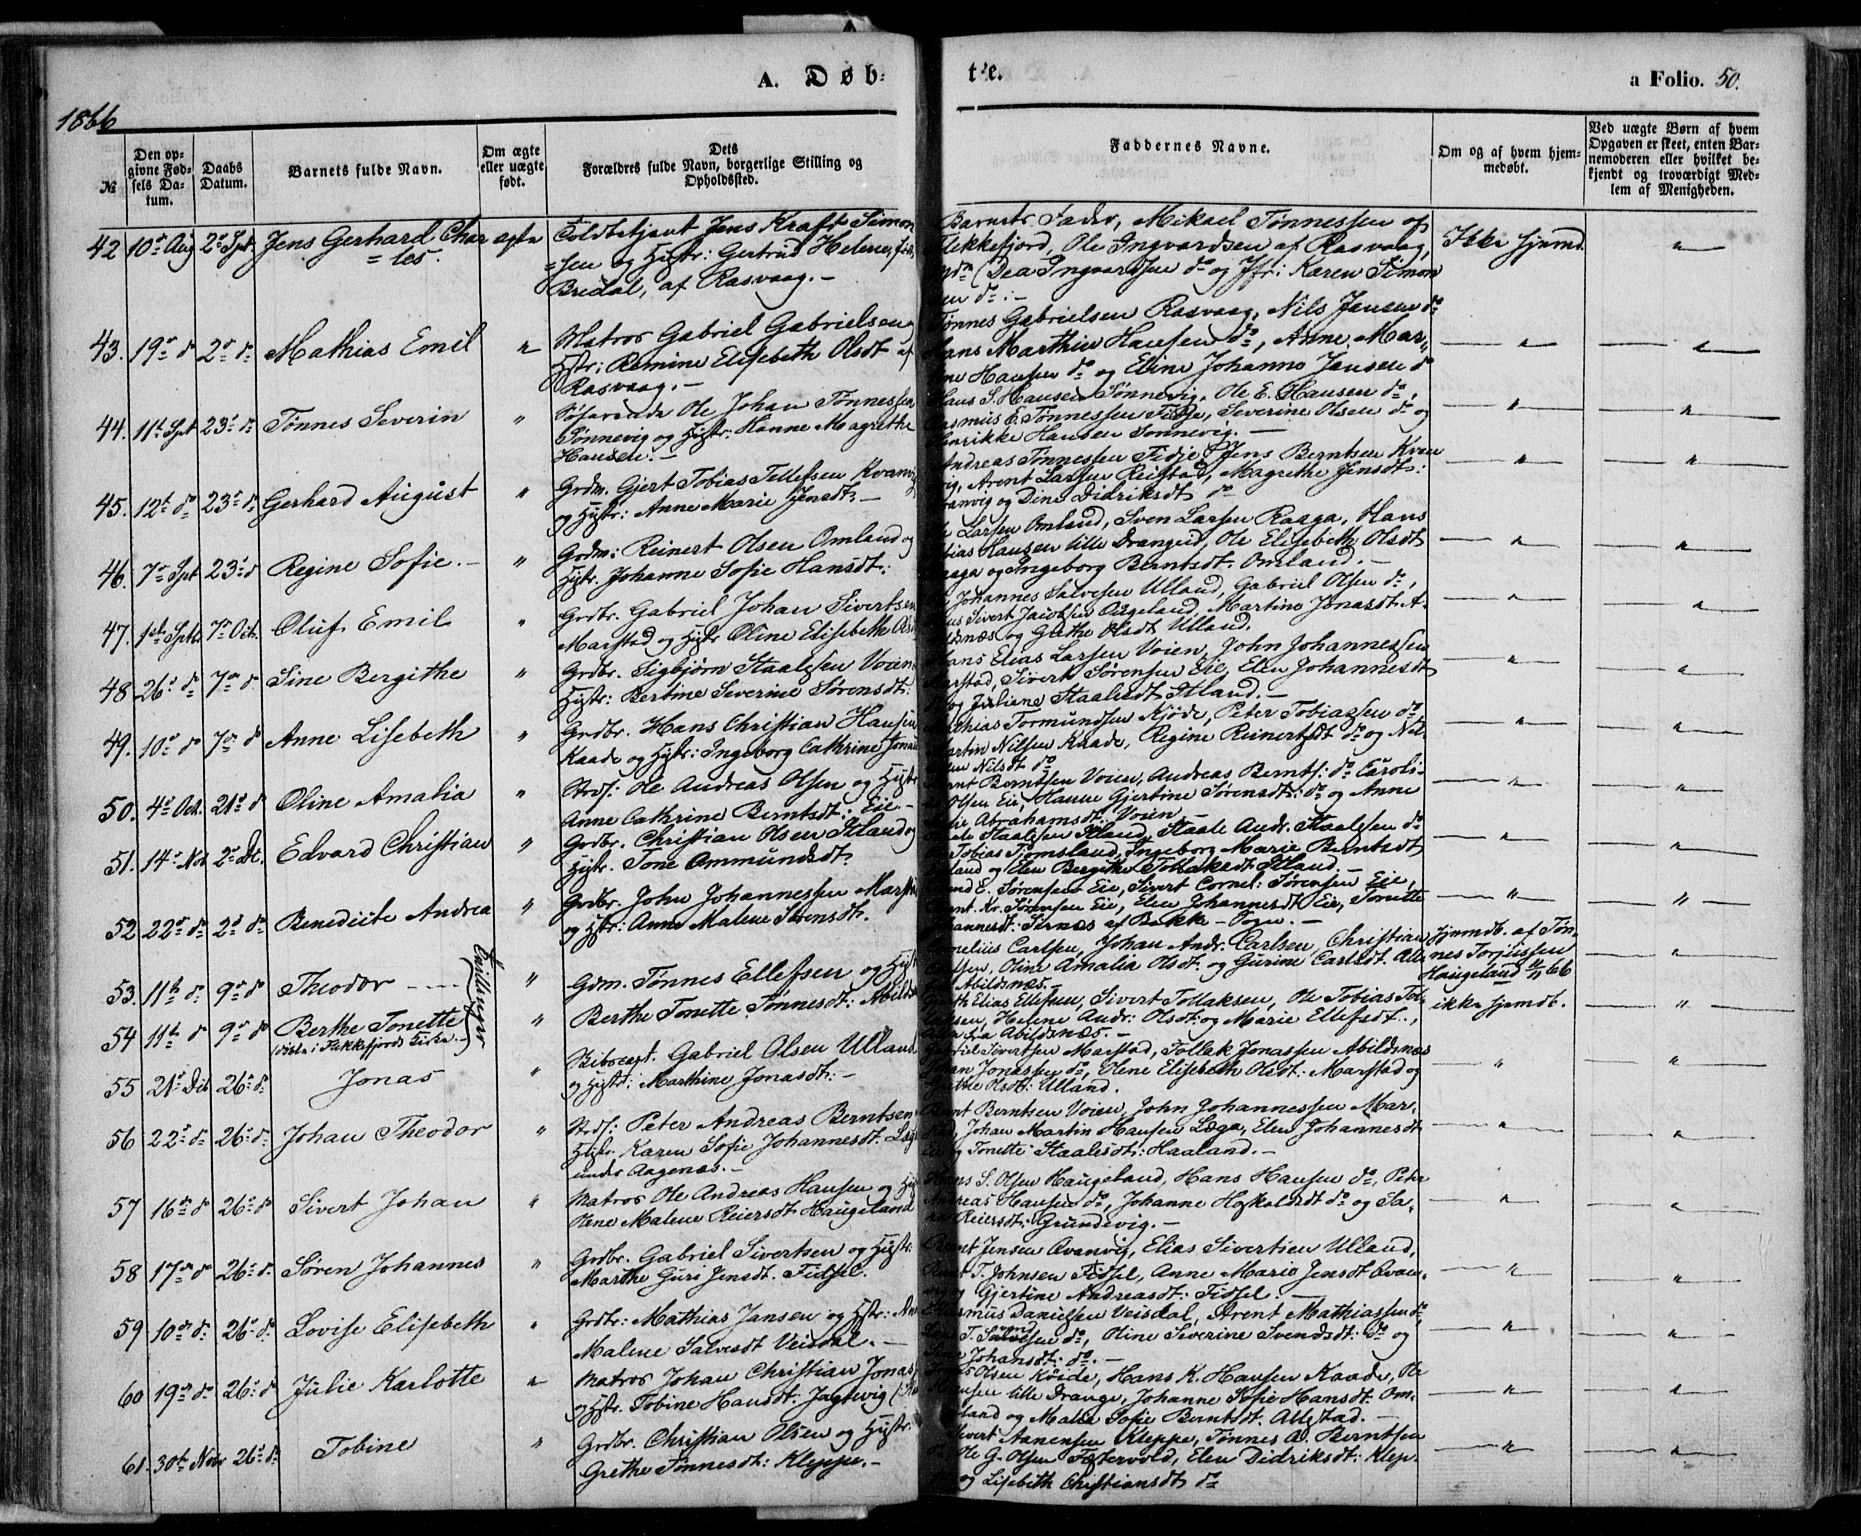 A. Døb-
te.
a Folio. 50.
1866
№
Den opgivne Fødsels Datum.
Daabs Datum.
Barnets fulde Navn.
Om ægte eller uægte født.
Dets Forældres fulde Navn, borgerlige Stilling og Opholdssted.
Faddernes Navne.
Om og af hvem hjemmedøbt.
Ved uægte Børn af hvem Opgaven er skeet, enten Barnemoderen eller hvilket bekjendt og troværdigt Medlem af Menigheden.
42 10de Aug 2de Spt Jens Gerhard Char= ægte Toldbetjent Jens Kraft Simon
=les. =sen og Hustr: Gertrud Helene, født
Bredal, af Rasvaag.-
Barnets Fader, Mikael Tønnessen af
Flekkefjord, Ole Ingvardsen af Rasvaag,
(Dea Ingvardsen do og Jfr: Karen Simon
sen do:- Ikke hjemd. "
43. 19de do 2de do Mathias Emil " Matros Gabriel Gabrielsen og
Hstr: Romine Elisebeth Olsdt af
Rasvaag.-
Tønnes Gabrielsen Rasvaag, Nils Jansen do
Hans Marthin Hansen do, Anne Mar-
ne Hansen do og Eline Johanne Jansen do
44. 11te Spt 23de do Tønnes Severin " Søfarende Ole Johan Tønnessen
Sønnevig og Hustr: Hanne Magrethe
Hansen.-
Hans S. Hansen Sønnevig, Ole E. Hansen do,
Rasmus E. Tønnessen Fidje, Severine Olsen do og
Henrikke Hansen Sønnevig.-
45. 12te do 23de do Gerhard August " Grdm. Gjert Tobias Tellefsen Kvanvig
og Hustr: Anne Marie Jensdt.-
Andreas Tønnessen Fidje, Jens Berntsen Kvan
vig, Arent Larsen Reistad, Magrethe Jensdt:
Kvanvig og Dine Didriksdt do
46. 7de Spt 23de do Regine Sofie.- " Grdm: Reinert Olsen Omland og
Hustr. Johanne Sofie Hansdt:
Larsen Omland, Sven Larsen Raaga, Hans
Tobias Hansen lille Drangeid, Ole Elisebeth Olsdt
Raaga og Ingeborg Berntsdt. Omland.-
47. 1ste Sptb 7de Oct. Oluf Emil " Grdbr. Gabriel Johan Sivertsen
Marstad og Hustr Oline Elisebeth Olsdt
Johannes Salvesen Ulland, Gabriel Olsen do,
Sivert Jacobsen Augeland, Martine Jonasdt A-
bildsnæs og Grethe Olsdt Ulland.
48 26de do 7de do Sine Bergithe " Grdbr. Sigbjørn Staalesen Voien
Hustr: Bertine Severine Sørensdt:
Hans Elias Larsen Voien, John Johannessen
Marstad, Sivert Sørensen Eie, Elen Johannesdt
og Juliane Staalesdt Stland.-
49. 10de do 7de do Anne Lisebeth " Grdbr. Hans Christian Hansen
Kaade og Hustr: Ingeborg Cathrine Jonas
Mathias Tormundsen Kjøde, Peter Tobiassen do
Martin Nilsen Kaade, Regine Reinertsdt do og Nel-
Nilsdt do
50. 4de Oct. 21de do Oline Amalia " Strdf: Ole Andreas Olsen og Hustr
Anne Cathrine Berntsdt: Eie.-
Bernt Berntsen Voien, Andreas Bernts: do Caroli-
Olsen Eie, Hanne Gjertine Sørensdt: do og Anne
Abrahamsdt: Voien.-
51. 14de Nov 2de Dc. Edvard Christian " Grdbr. Christian Olsen Stland og
Hustr. Tone Ommundsdt.
Staalesen Stland, Staale Andr. Staalesen do
Tobias Tjomsland, Ingeborg Marie Berntsdt
og Elen Bergithe Tollaksdt Stland.-
52 22de do 2de do Benedicte Andrea " Grdbr. John Johannessen Marstad
og Hstr: Anne Malene Sørensdt.
E. Sørensen Eie, Sivert Cornel: Sørensen Eie,
Bernt. Kr. Sørensen Eie, Elen Johannesdt Eie, Tonette
Johannesdt: Sirnæs af Bakke-Sogn.-
53. 11te do 9de do Theodor Tvillinger " Gdm. Tønnes Ellefsen og Hustr
Berthe Tonette Tønnesdt: Abilds
Cornelius Carlsen, Johan Andr. Carlsen, Christian
Oline Amalia Olsdt. og Gurine Carlsdt. Alle
Abildsnæs.
Hjemdb. af Tøn-
nes Torjussen
Haugeland 66
54 11te do 9de do Berthe Tonette "
(døbte i Flekkefjords Kirke.-)
Elias Ellefsen, Sivert Tollaksen, Ole Tobias Tol-
laksen, Helene Andr: Olsdt: og Marie Ellefsdt.,
Abildsnæs.-
ikke hjemdb.
55 21de Dcb 26de do Jonas " Gabriel Olsen Ulland
og Hustr: Marthine Jonasdt:-
Gabriel Sivertsen Marstad, Tollak Jonassen Abildsnæs
Johan Jonassen do, Olene Elisebeth Olsdt: Marstad og
Grethe Olsdt: Ulland.
56 22de do 26de do Johan Theodor " Strdf: Peter Andreas Berntsen
Hustr. Karen Sofie Johannesdt. Læga
under Aagenæs.-
Bernt Berntsen Voien, John Johannessen Mar-
stad Johan Martin Hansen Læga, Elen Johannesdt
Eie og Tonette Staalesdt: Haaland.-
57 16de do 26de do Sivert Johan " Matros Ole Andreas Hansen og Hustr
Rene Malene Reiersdt. Haugeland
Hans S. Olsen Haugeland, Hans Hansen do, Peter
Andreas Hansen do, Johanne Hoskoldsdt do og Sa-
Reiersdt: Grundevig.-
58 17de do 26de do Søren Johannes " Grdbr. Gabriel Sivertsen og Hustr:
Marthe Guri Jensdt. Fidsel.
Bernt Jensen Qvanvig, Elias Sivertsen Ulland,
T. Johnsen Fidsel, Anne Marie Jensdt Qvan-
vig Gjertine Andreasdt: Fidsel.-
59 10de do 26de do Lovise Elisebeth " Grdbr: Mathias Jansen og Hstr: Ane
Malene Salvesdt Veisdal.-
Rasmus Danielsen Veisdal, Arent Mathiassen do,
T. Salvesen do, Oline Severine Svendsdt: do og
Johansdt: do.-
60 19de do 26de do Julie Karlotte " Matros Johan Christian Jonas
og Hstr. Tobine Hansdt. Jagtevig
Olsen Køide, Hans K. Hansen Kaade, Ole
Hansen lille Drange, Johanne Sofie Hansdt. Om-
land og Malla Sofie Berntsdt. Allestad.-
61. 30te Nov 26de do Tobine " Grdbr. Christian Olsen og Hustr.
Grethe Tønnesdt: Kleppe.-
Sivert Aanensen Kleppe, Tønnes A. Berntsen
Ole G. Olsen Festervold, Elen Didriksdt: Klep-
og Lisebeth Christiansdt do